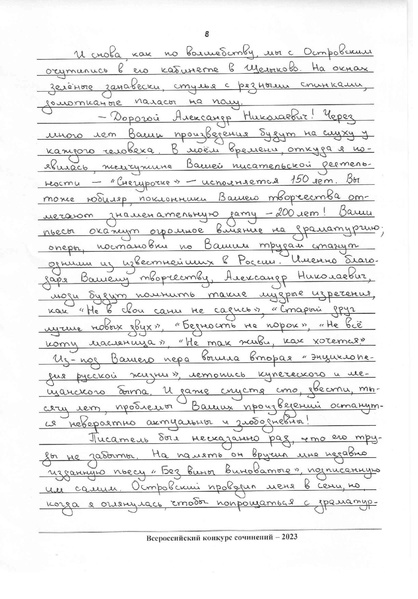 8
И снова, как по волшебству, мы с Островским
очутились в его кабинете в Щелыково. На окнах
зелёные занавески, стулья с резными спинками,
домотканые паласы на полу.
– Дорогой Александр Николаевич! Через
много лет Ваши произведения будут на слуху у
каждого человека. В моём времени, откуда я по-
явилась, жемчужине Вашей писательской деятель-
ности – «Снегурочке» – исполняется 150 лет. Вы
тоже юбиляр, поклонники Вашего творчества от-
мечают знаменательную дату – 200 лет! Ваши
пьесы окажут огромное влияние на драматургию,
оперы, постановки по Вашим трудам станут
одними из известнейших в России. Именно благо-
даря Вашему творчеству, Александр Николаевич,
люди будут помнить такие мудрые изречения,
как «Не в свои сани не садись», «Старый друг
лучше новых двух», «Бедность не порок», «Не всё
коту масленица», «Не так живи, как хочется»
Из-под Вашего пера вышла вторая «энциклопе-
дия русской жизни», летопись купеческого и ме-
щанского быта. И даже спустя сто, двести, ты-
сячу лет, проблемы Ваших произведений останут-
ся невероятно актуальны и злободневны!
Писатель был несказанно рад, что его тру-
ды не забыты. На память он вручил мне недавно
изданную пьесу «Без вины виноватые», подписанную
им самим. Островский проводил меня в сени, но
когда я оглянулась, чтобы попрощаться с драматур-
Всероссийский конкурс сочинений – 2023